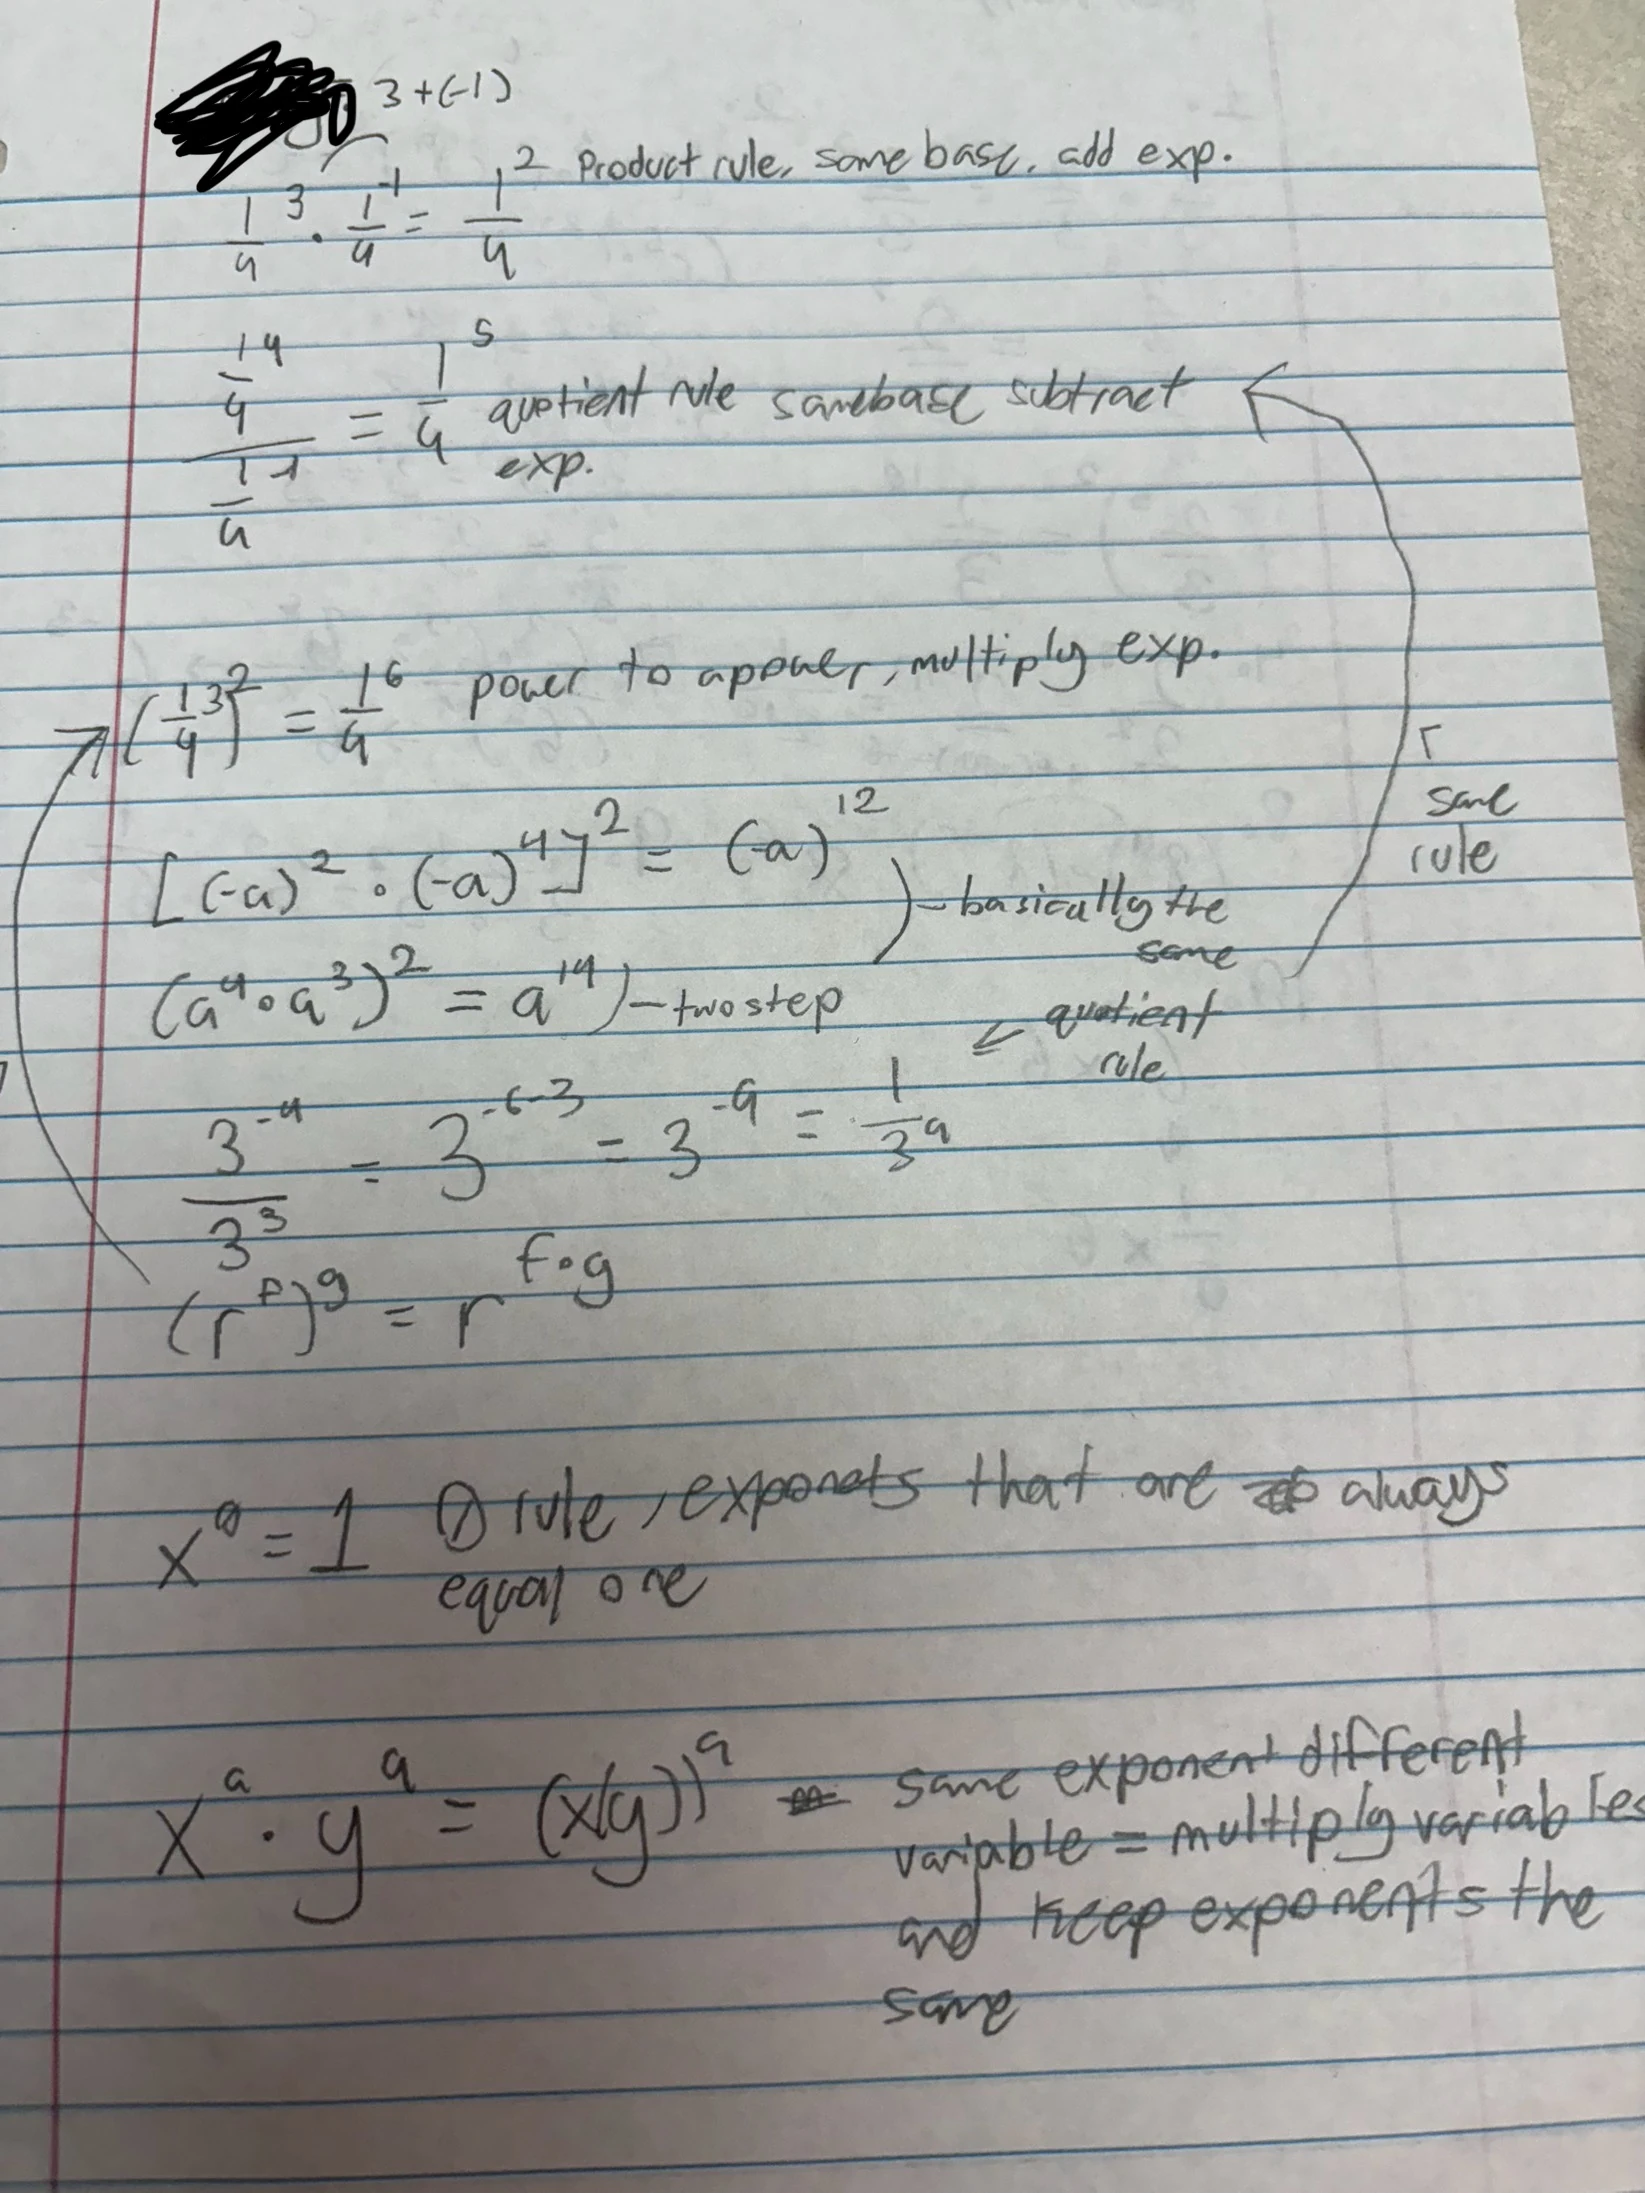 3+(-1)
1/4 ^3 · 1/4 ^-1 = 1/4 ^2 Product rule, same base, add exp.
(1/4 ^4)/(1/4 ^-1) = 1/4 ^5 quotient rule samebase subtract
exp.
(1/4 ^3)^2 = 1/4 ^6 power to a power, multiply exp.
[(-a)^2 · (-a)^4]^2 = (-a)^12
) - basically the
same
same
rule
(a^4 · a^3)^2 = a^14 ) - two step
← quotient
rule
3^-4/3^3 = 3^-6-3 = 3^-9 = 1/3^9
(r^f)^g = r^f·g
x^0 = 1 0 rule, exponets that are always
equal one
x^a · y^a = (x(y))^a same exponent different
variable = multiply variables
and keep exponents the
same